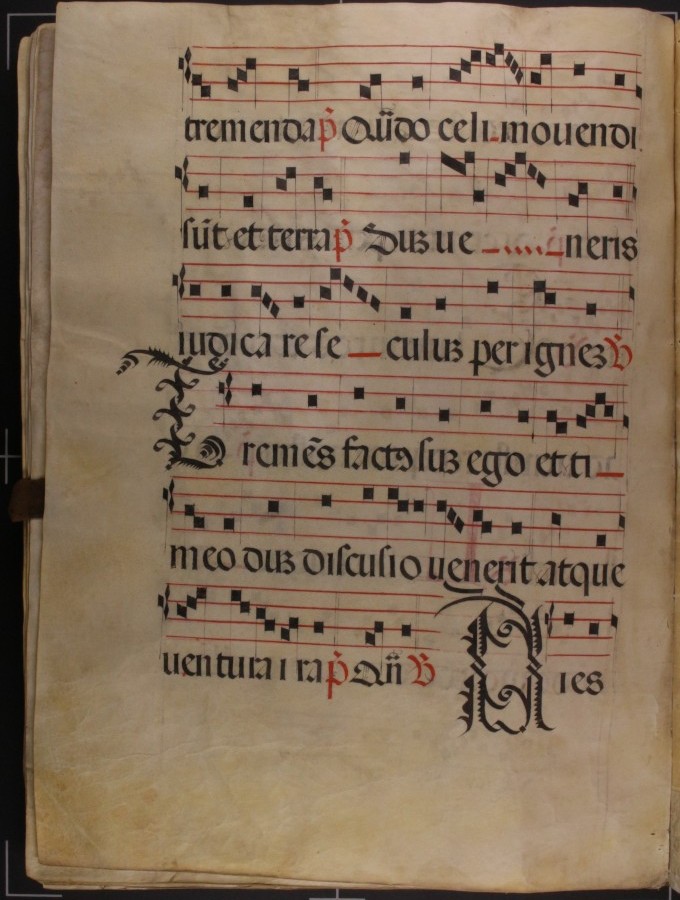 tremenda p̃ Qũdo celi mouendi
sũt et terra p̃ Dũ ueneris
iudicare seculũ per ignẽ ℣
Tremẽs factꝰ sũ ego et ti
meo dũ discusio uenerit atque
uentura ira p̃ Qñ ℣ Dies